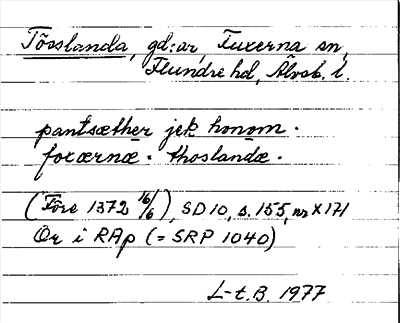 Tösslanda, gd:ar, Fuxerna sn,
Flundre hd, Älvsb. l.
pantsæther jek honom ·
foxærnæ · thoslandæ ·
(Före 1372 16/6), SD 10, s. 155, nr X 171
Or i RAp (= SRP 1040)
L-t. B. 1977